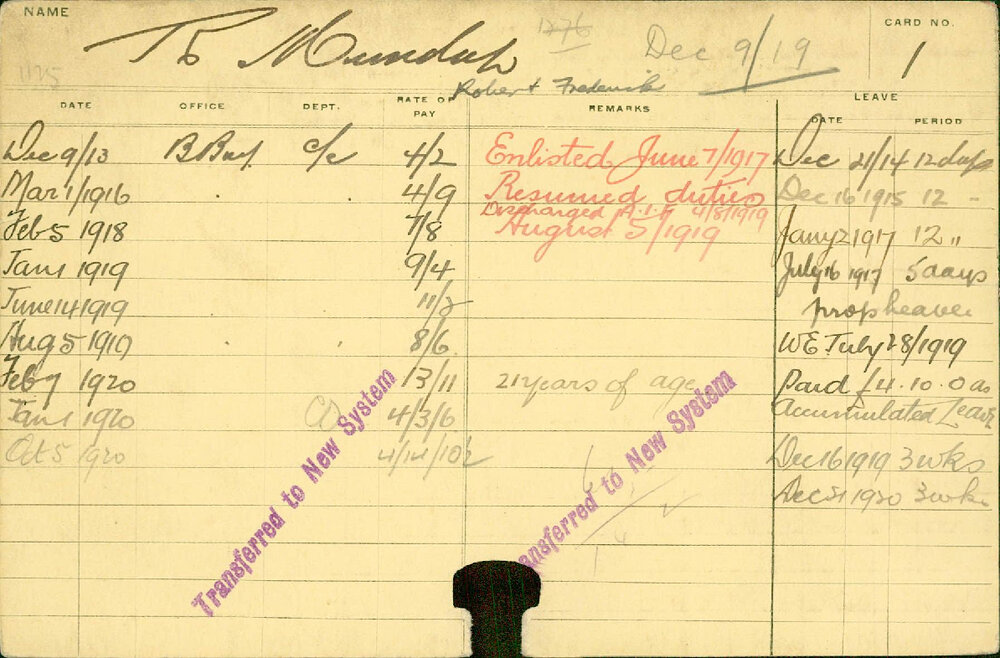 NAME
CARD NO.
1
R F Mundah
Robert Frederick
1276
Dec 9/19
1125
DATE OFFICE DEPT. RATE OF PAY REMARKS LEAVE DATE PERIOD
Dec 9/13 B Bay c/c 4/2 Enlisted June 7/1917 Dec 21/14 12 days
Mar 1/1916 4/9 Resumed duties Dec 16 1915 12 "
Discharged A.I.F. 4/8/1919
Feb 5 1918 7/8 August 5/1919 Jany 2 1917 12 "
Jan 1 1919 9/4 July 16 1917 5 days
June 14 1919 11/3 prop leave
Aug 5 1919 8/6 WE July 28/1919
Feb 7 1920 13/11 21 years of age Paid £4.10.0 as
Jan 1 1920 4/3/6 Accumulated Leave
Oct 5 1920 4/14/10½ Dec 16 1919 3 wks
Dec 21 1920 3 wks
Transferred to New System
Transferred to New System